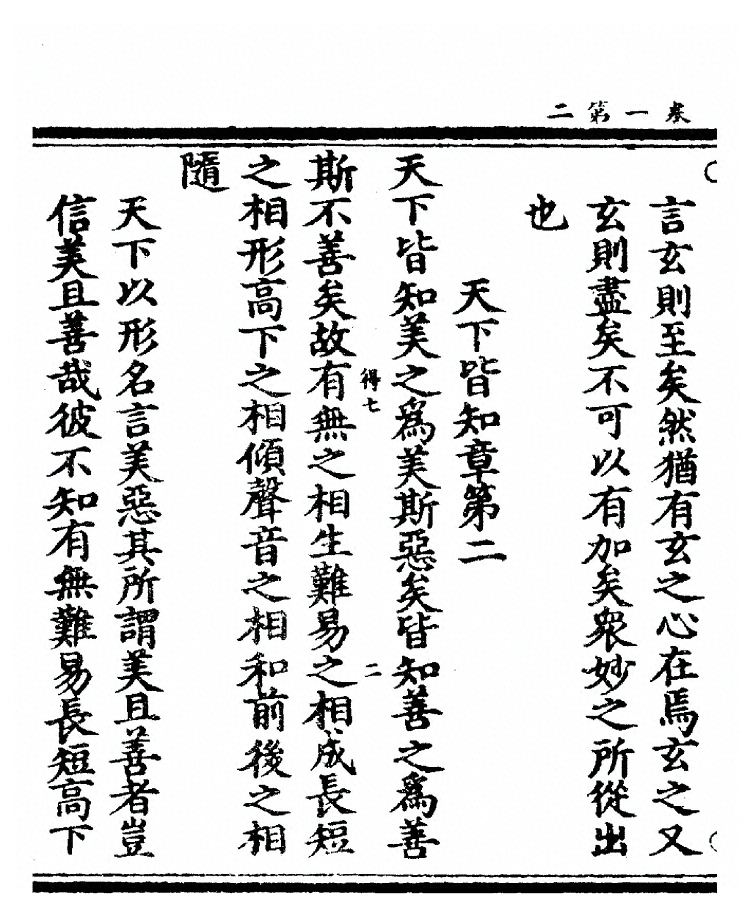 卷一第二
言玄則至矣然猶有玄之心在焉玄之又
玄則盡矣不可以有加矣衆妙之所從出
也
天下皆知章第二
天下皆知美之爲美斯惡矣皆知善之爲善
得七
二
斯不善矣故有無之相生難易之相成長短
之相形高下之相傾聲音之相和前後之相
隨
天下以形名言美惡其所謂美且善者豈
信美且善哉彼不知有無難易長短高下